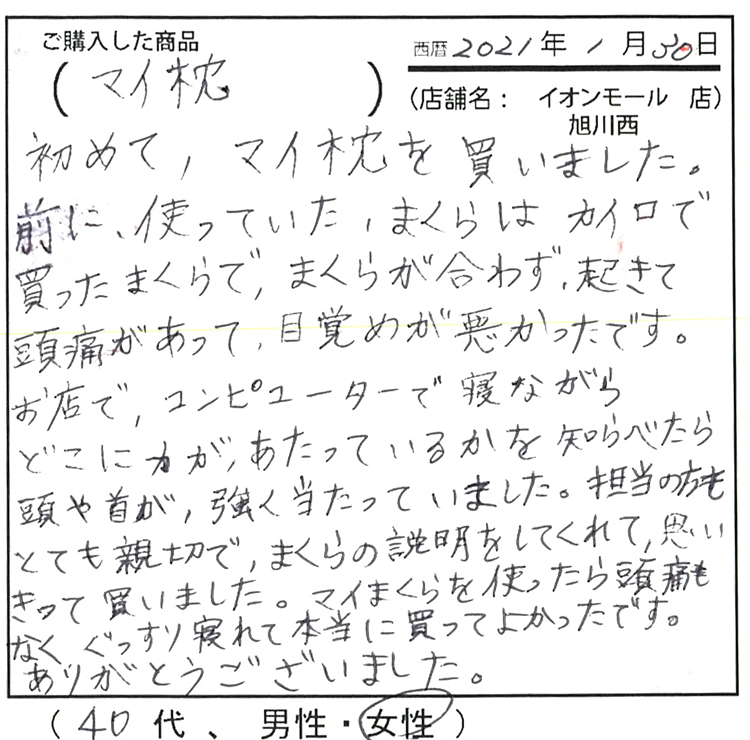 ご購入した商品
(マイ枕)
西暦2021年1月30日
(店舗名: イオンモール 店)
旭川西
初めて,マイ枕を買いました。
前に、使っていた,まくらは カイロで
買ったまくらで,まくらが合わず,起きて
頭痛があって,目覚めが悪かったです。
お店で,コンピューターで寝ながら
どこに力が,あたっているかを知らべたら
頭や首が,強く当たっていました。担当の方も
とても親切で,まくらの説明をしてくれて,思い
きって買いました。マイまくらを使ったら頭痛も
なくぐっすり寝れて本当に買ってよかったです。
ありがとうございました。
(40代、男性・女性)